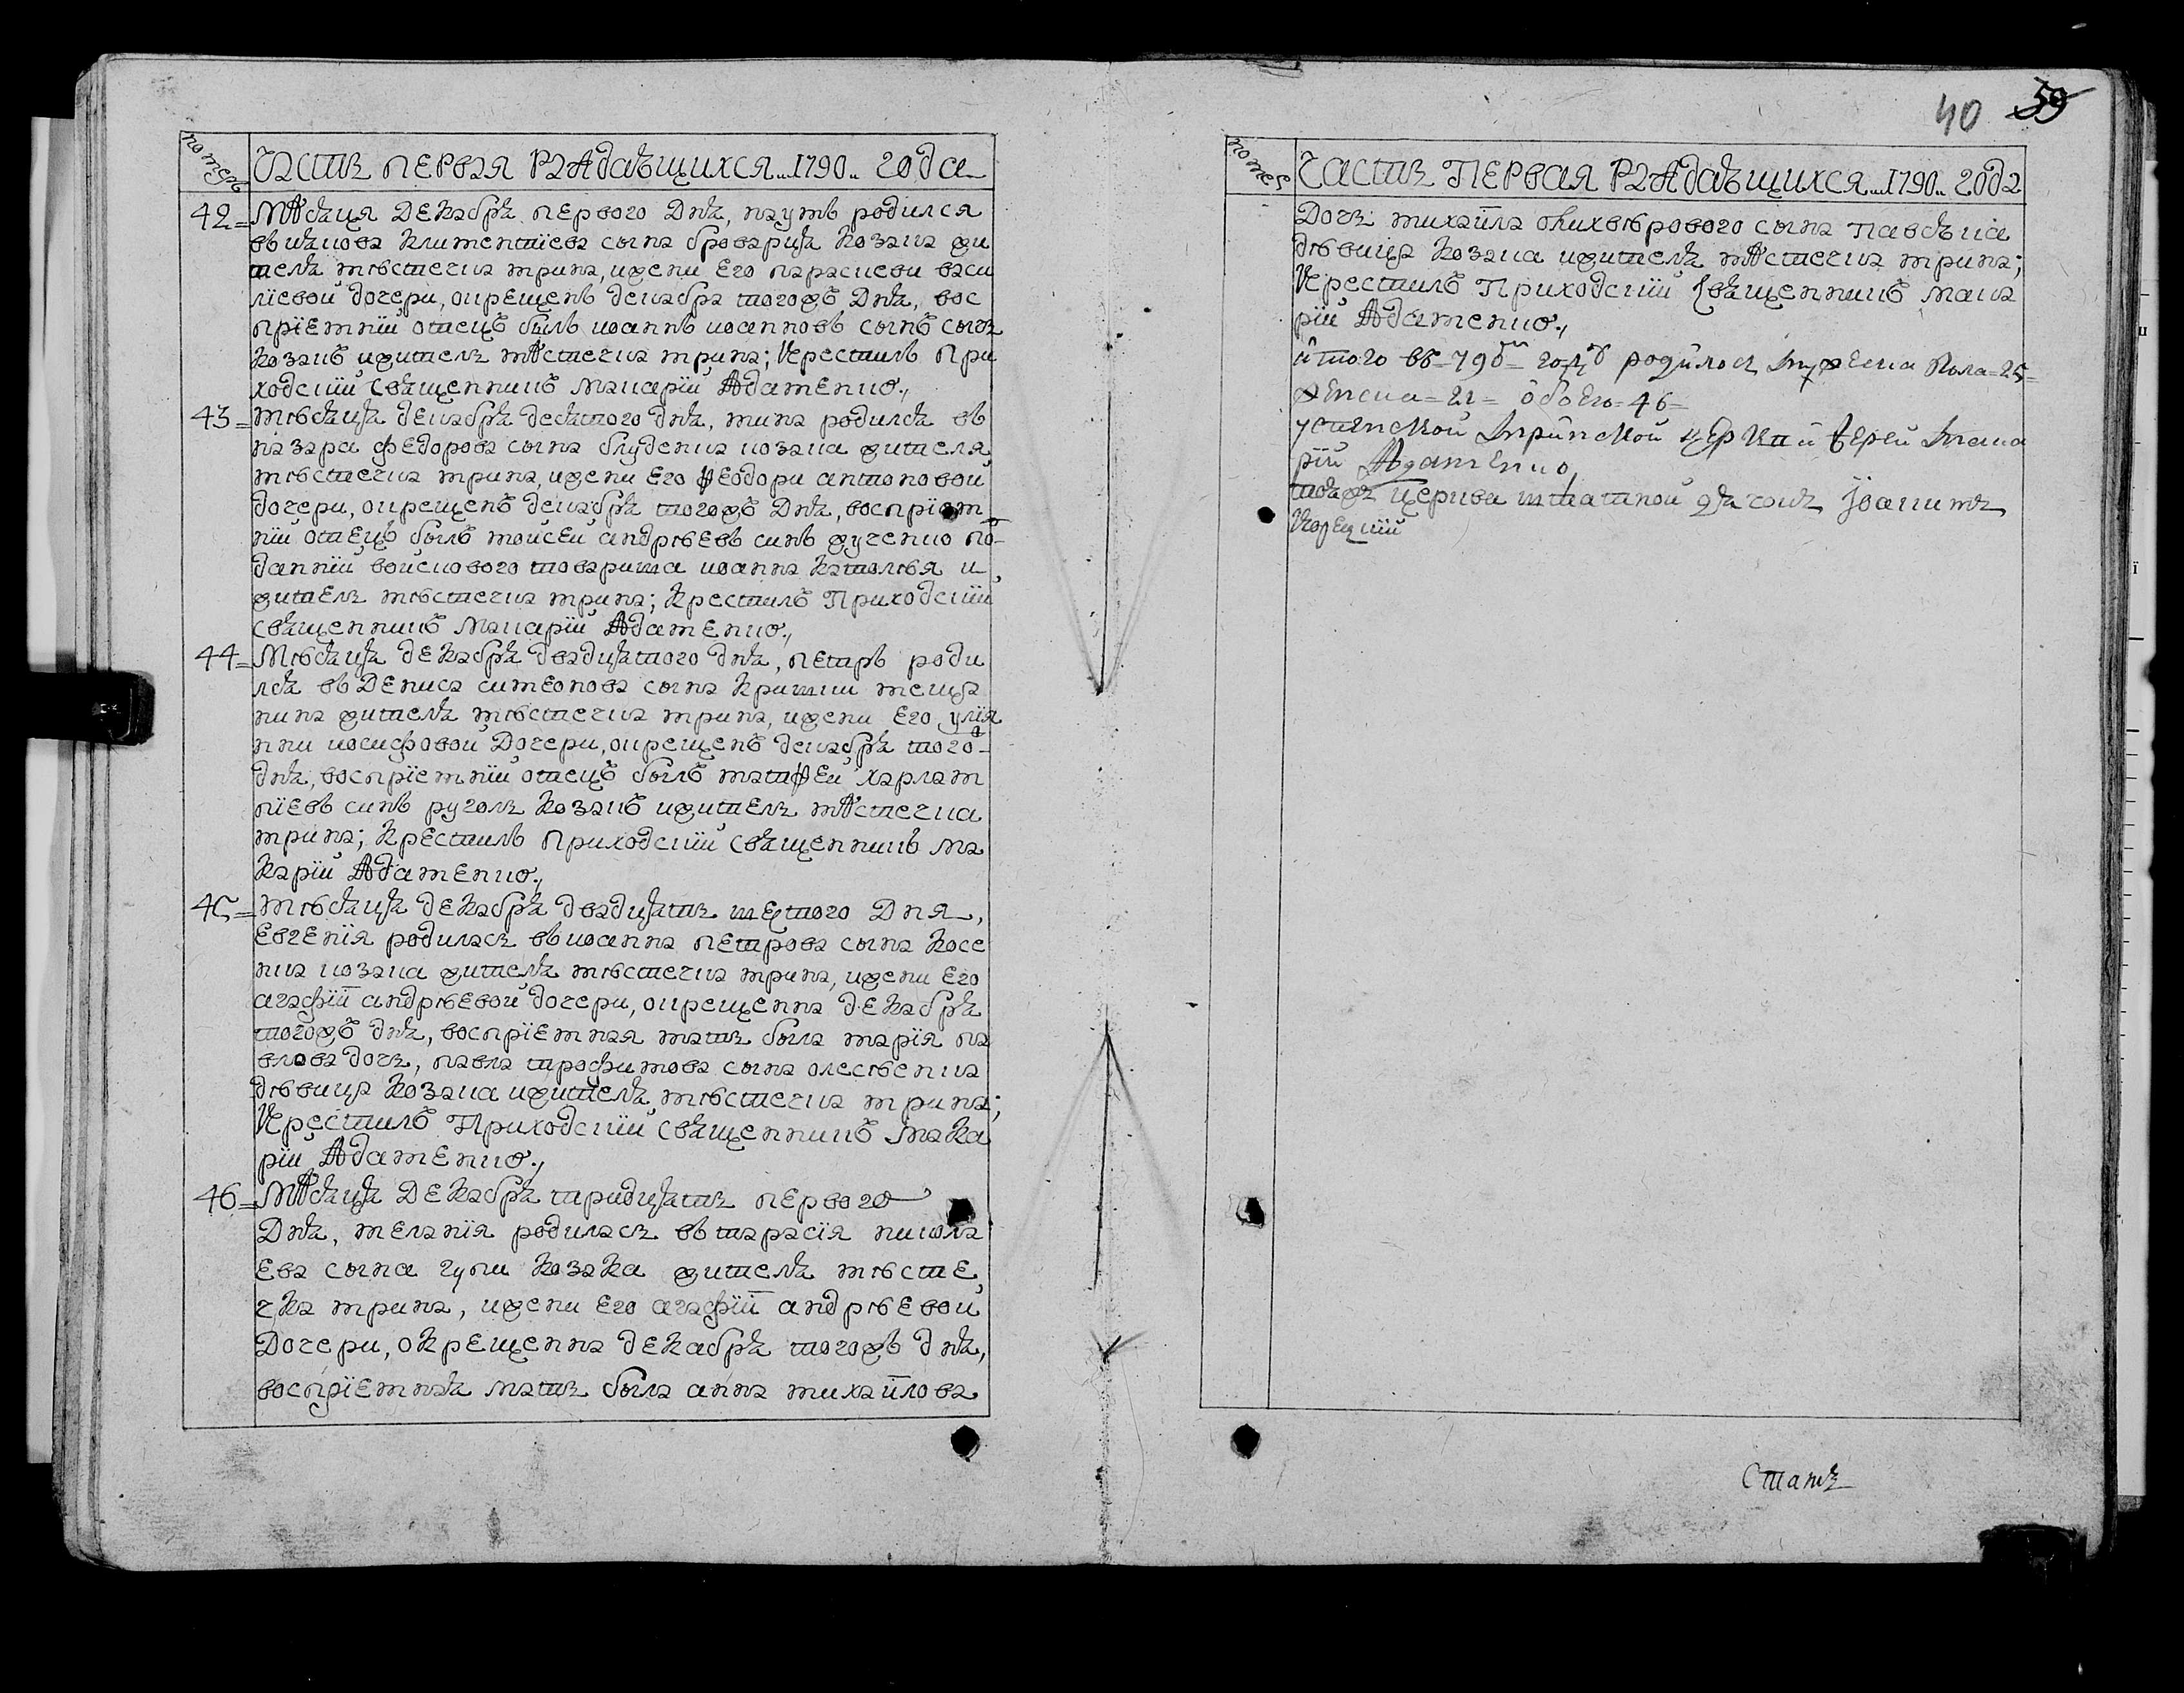 номеръ
Часть первая раждающихся 1790 года
42 Мѣсяця декабря первого дня, наумъ родился
въ якова климентиева сына броварця козака жи
теля мѣстечка мрина, ижени его параскеви васи
лиевой дочери, окрещенъ декабря тогожъ дня, вос
приемний отецъ былъ иоаннъ иоанновъ сынъ сычь
козакъ ижитель мѣстечка мрина; крестилъ при
ходский священникъ макарий Адаменко
43 мѣсяця декабря десятого дня, мина родился въ
назара федорова сына блуденка козака жителя
мѣстечка мрина, ижени его ѳеодори антоновой
дочери, окрещенъ декабря тогожъ дня, восприем
ний отецъ былъ мойсей андрѣевъ синъ жученко по
данний войскового товариша иоанна католѣя и
житель мѣстечка мрина; крестилъ Приходский
священникъ макарий Адаменко
44 Мѣсяця декабря двадцятого дня, петръ роди
лся въ дениса симеонова сына кришки меща
нина жителя мѣстечка мрина, ижени его улия
нни иосифовой дочери, окрещенъ декабря тогож
дня, восприемний отецъ былъ матѳей харлам
пиевъ синъ руголь козакъ ижитель мѣстечка
мрина; крестилъ приходский священникъ ма
карий Адаменко
45 мѣсяця декабря двадцять шестого дня,
евгения родилась въ иоанна петрова сына косе
нка козака жителя мѣстечка мрина, ижени его
агафии андрѣевой дочери, окрещенна декабря
тогожъ дня, восприемная мать была мария па
влова дочь, павла трофимова сына олесѣенка
дѣвица козака ижителя мѣстечка мрина;
крестилъ Приходский священникъ мака
рий Адаменко
46 Мѣсяця декабря тридцять первого
дня, мелания родилась въ тарасия никола
ева сына чупи козака жителя мѣсте
чка мрина, ижени его агафии андрѣевой
дочери, окрещенна декабря тогожъ дня,
восприемная мать была анна михайлова
40 59
номер
Часть Первая раждающихся 1790 года
дочь михайла никиѳорового сына павлюка
дѣвица козака ижителя мѣстечка мрина;
крестилъ Приходский священникъ мака
рий Адаменко
итого въ 790м году родилось мужеска пола=25=
женска=21= обоего=46=
успенской мринской церкви иерей мака
рий Адаменко
тояжъ церкви штатной дячокъ Иоаким
корецкий
Стать